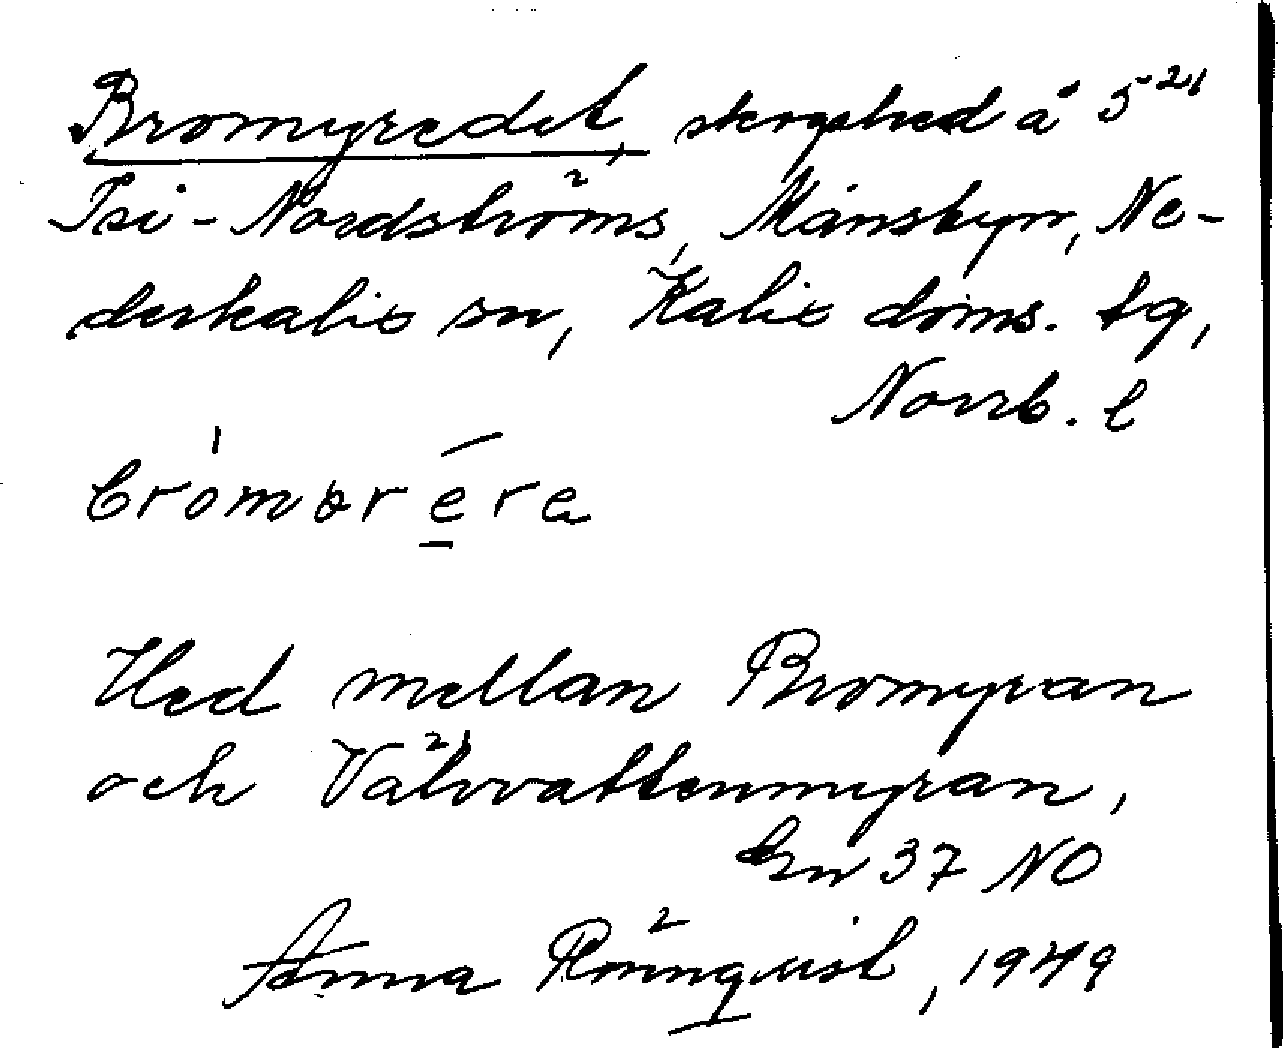 Bromyredet, skogshed å 5²¹
Isi-Nordströms, Månsbyn, Ne-
derkalix sn, Kalix doms. tg,
Norrb. l
Hed mellan Bromyran
och Välvvattenmyran,
Gn 37 NO
Anna Rönnquist, 1949